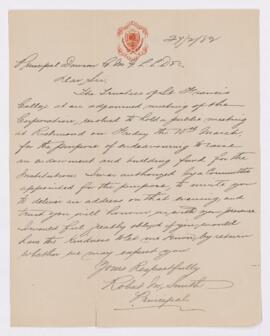 27/2/82
Principal Dawson C M G L L D &c
Dear Sir
The Trustees of St Francis
College at an adjourned meeting of the
Corporation, resolved to hold a public meeting
at Richmond on Friday the March,
for the purpose of endeavouring to raise
an endowment and building fund for the
Institution. I was authorized by a Committee
appointed for the purpose, to invite you
to deliver an address on that evening, and
trust you will honour us with your presence
I would feel greatly obliged if you would
have the kindness to let me know by return
whether we may expect you
Yours Respectfully
Robert M. Smith
Principal